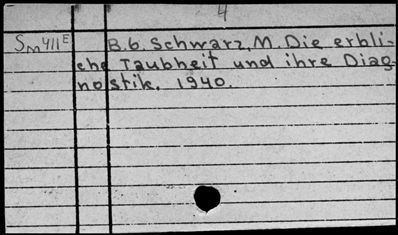 4
Sm411E B.6. Schwarz, M. Die erbli-
che Taubheit und ihre Diag-
nostik. 1940.